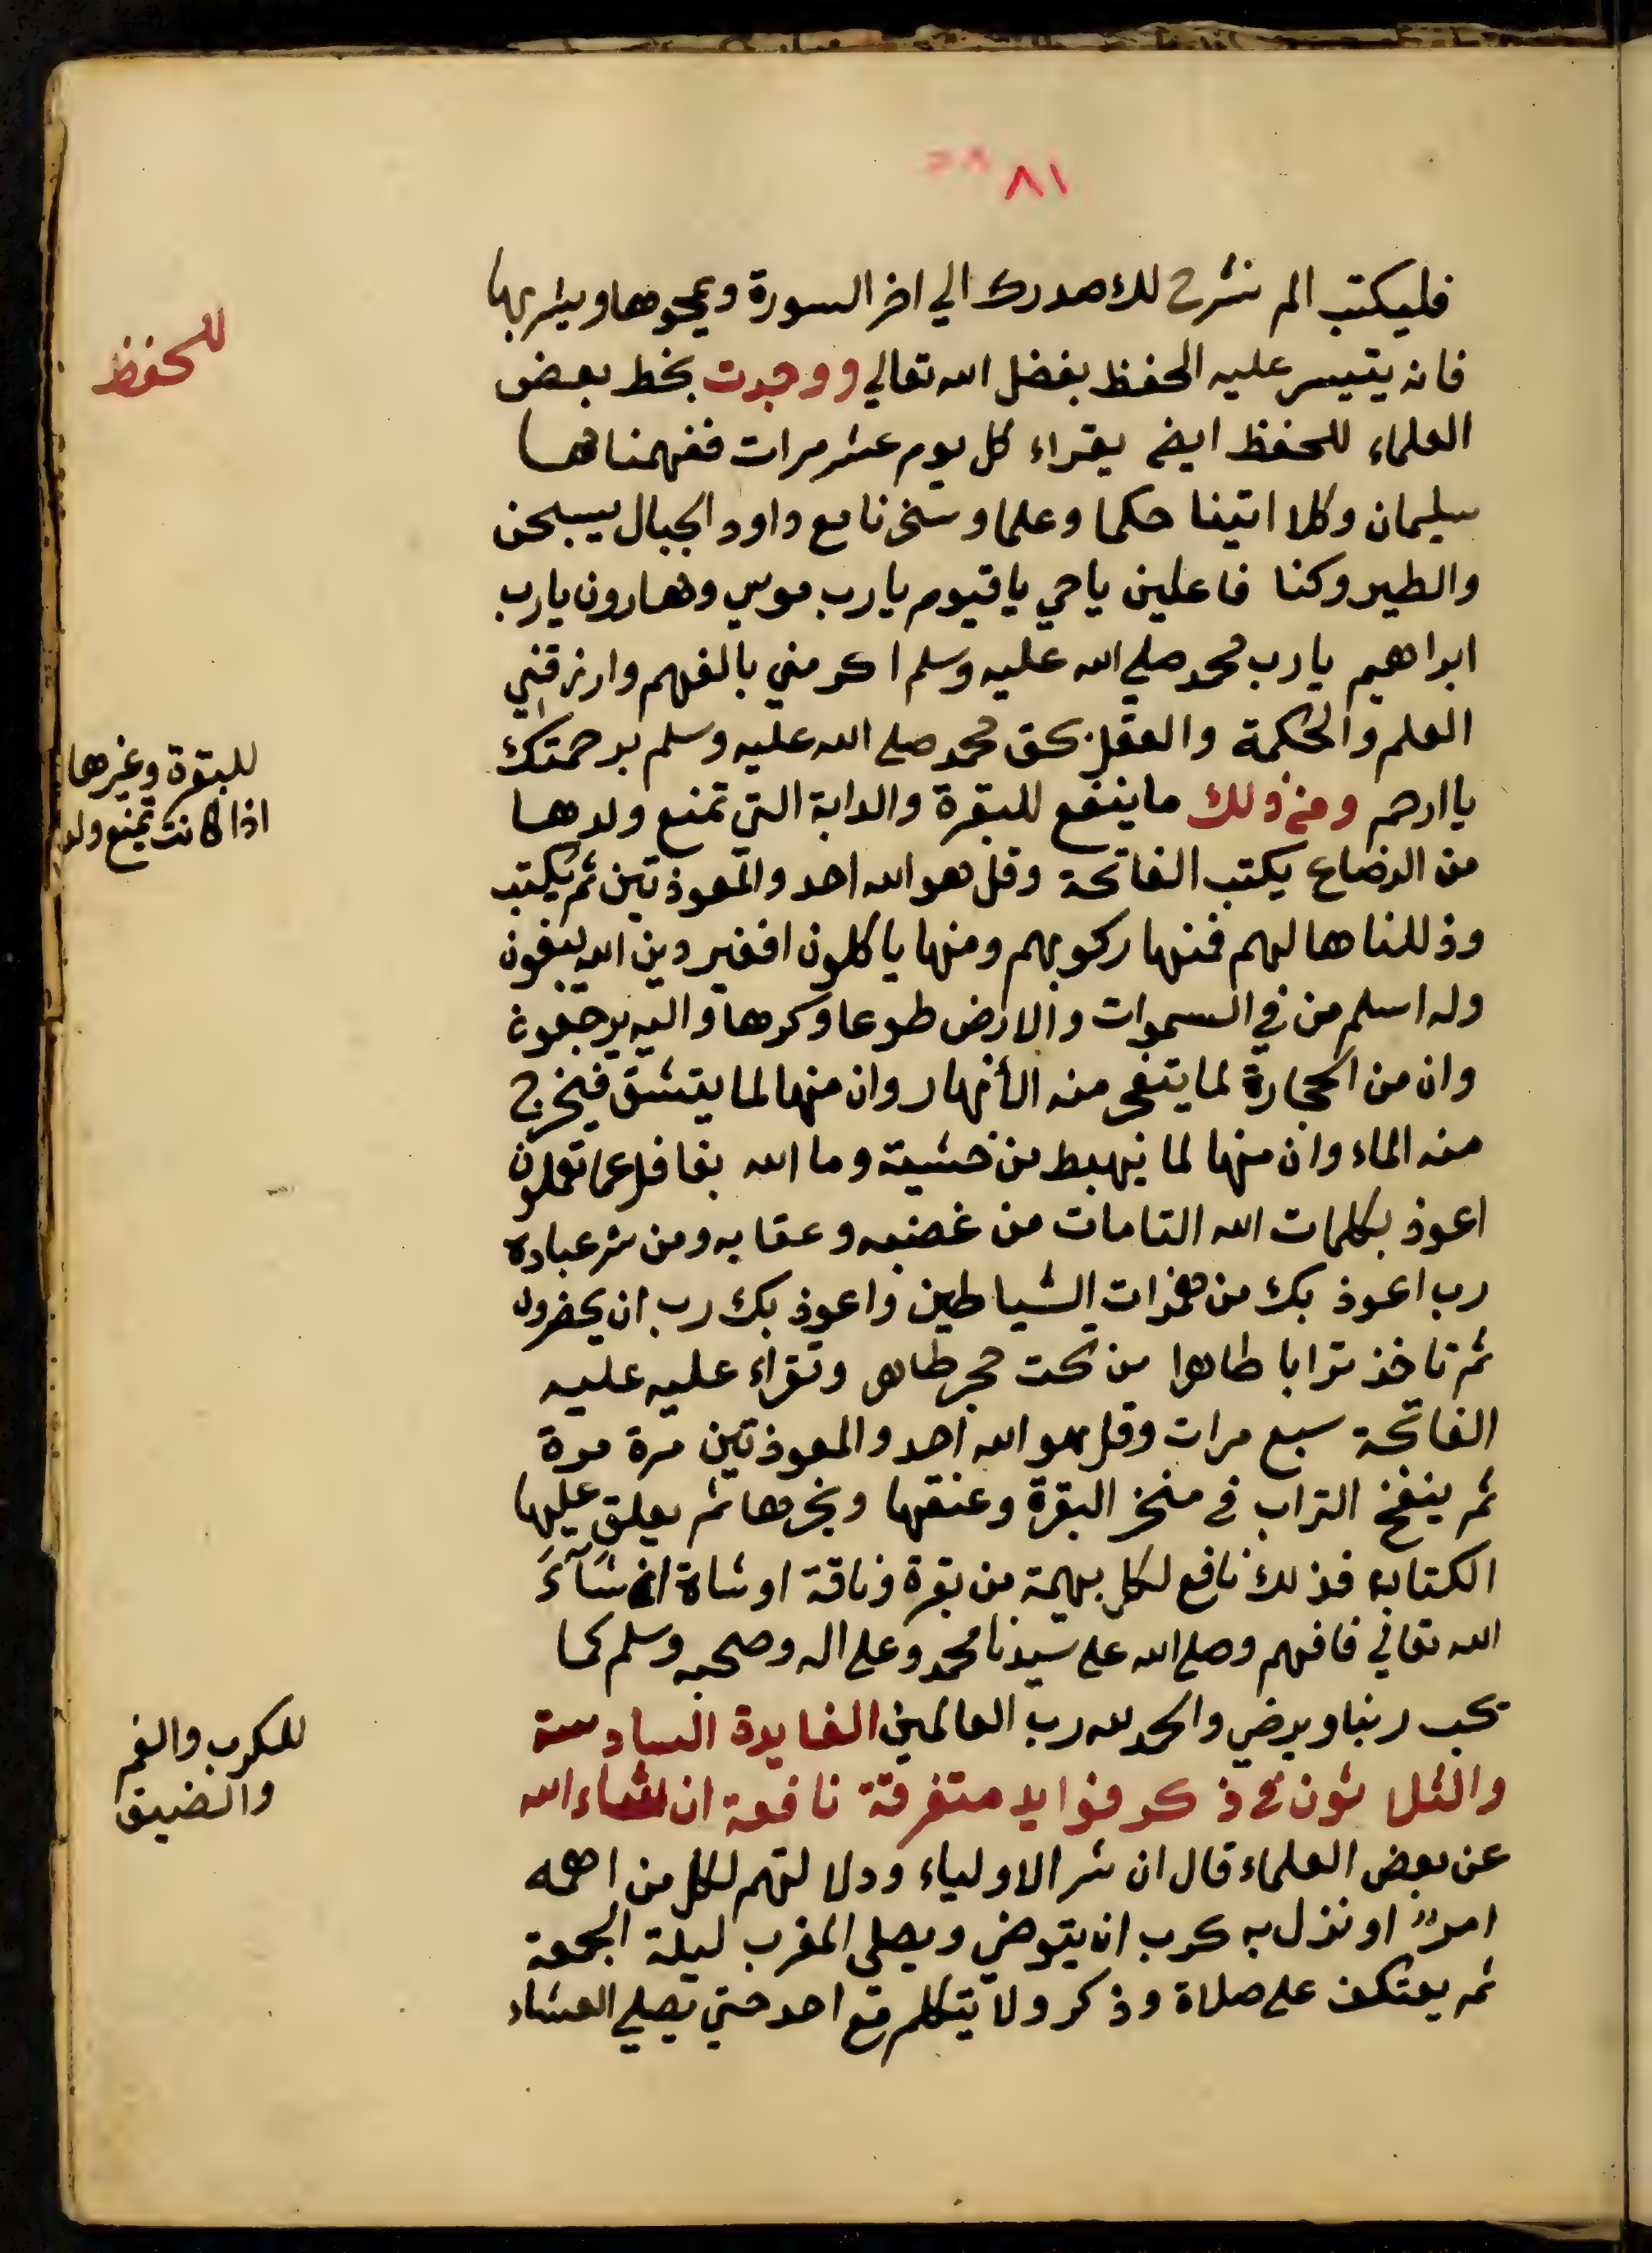 ٨١
فليكتب الم نشرح لك صدرك الي اخر السورة ويمحوها ويشربها
فانه يتيسر عليه الحفظ بفضل الله تعالي ووجدت بخط بعض
للحفظ
العلماء للحفظ ايضا يقراء كل يوم عشر مرات ففهمناها
سليمان وكلا اتينا حكما وعلما وسخرنا مع داود الجبال يسبحن
والطير وكنا فاعلين ياحي ياقيوم يارب موسي وهارون يارب
ابراهيم يارب محمد صلي الله عليه وسلم اكرمني بالفهم وارزقني
العلم والحكمة والعقل بحق محمد صلي الله عليه وسلم برحمتك
ياارحم ومن ذلك ماينفع للبقرة والدابة التي تمنع ولدها
للبقرة وغيرها
اذا كانت تمنع ولد
من الرضاع يكتب الفاتحة وقل هو الله احد والمعوذتين ثم يكتب
وذللناها لهم فمنها ركوبهم ومنها ياكلون افغير دين الله يبغون
وله اسلم من في السموات والارض طوعا وكرها واليه يرجعون
وان من الحجارة لما يتفجر منه الأنهار وان منها لما يتشقق فيخرج
منه الماء وان منها لما يهبط من خشية وما الله بغافل عما تعملون
اعوذ بكلمات الله التامات من غضبه وعقابه ومن شر عباده
رب اعوذ بك من همزات الشياطين واعوذ بك رب ان يحضرون
ثم تاخذ ترابا طاهرا من تحت حجر طاهر وتقراء عليه عليه
الفاتحة سبع مرات وقل هو الله احد والمعوذتين مرة مرة
ثم ينفخ التراب في منخر البقرة وعنقها ونحرها ثم يعلق عليها
الكتابه فذلك نافع لكل بهيمة من بقرة وناقة او شاة ان شآء
الله تعالي فافهم وصلي الله علي سيدنا محمد وعلي اله وصحبه وسلم كما
يحب ربنا ويرضي والحمد لله رب العالمين الفايدة السادسة
والثلاثون في ذكر فوايد متفرقة نافعة ان شاء الله
للكرب والغم
والضيق
عن بعض العلماء قال ان سر الاولياء ودلالتهم لكل من اهمه
امرا او نزل به كرب ان يتوضي ويصلي المغرب ليلة الجمعة
ثم يعتكف علي صلاة وذكر ولا يتكلم مع احد حتي يصلي العشاء